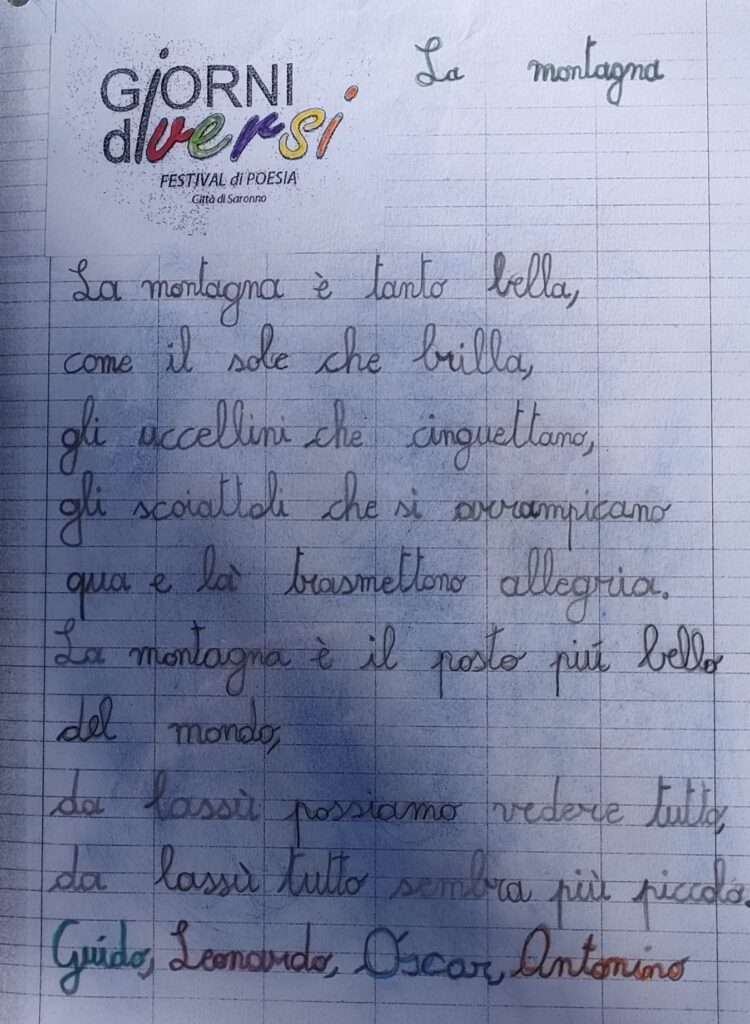 GiORNI
diversi
FESTIVAL di POESIA
Città di Saronno
La montagna
La montagna è tanto bella,
come il sole che brilla,
gli uccellini che cinguettano,
gli scoiattoli che si arrampicano
qua e là trasmettono allegria.
La montagna è il posto più bello
del mondo,
da lassù possiamo vedere tutto,
da lassù tutto sembra più piccolo.
Guido, Leonardo, Oscar, Antonino